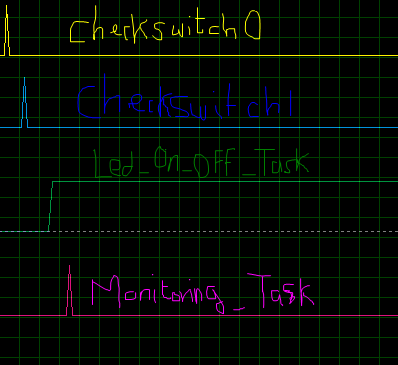 Checkswitch0
Checkswitch1
Led_On_OFF_Task
Monitoring_Task